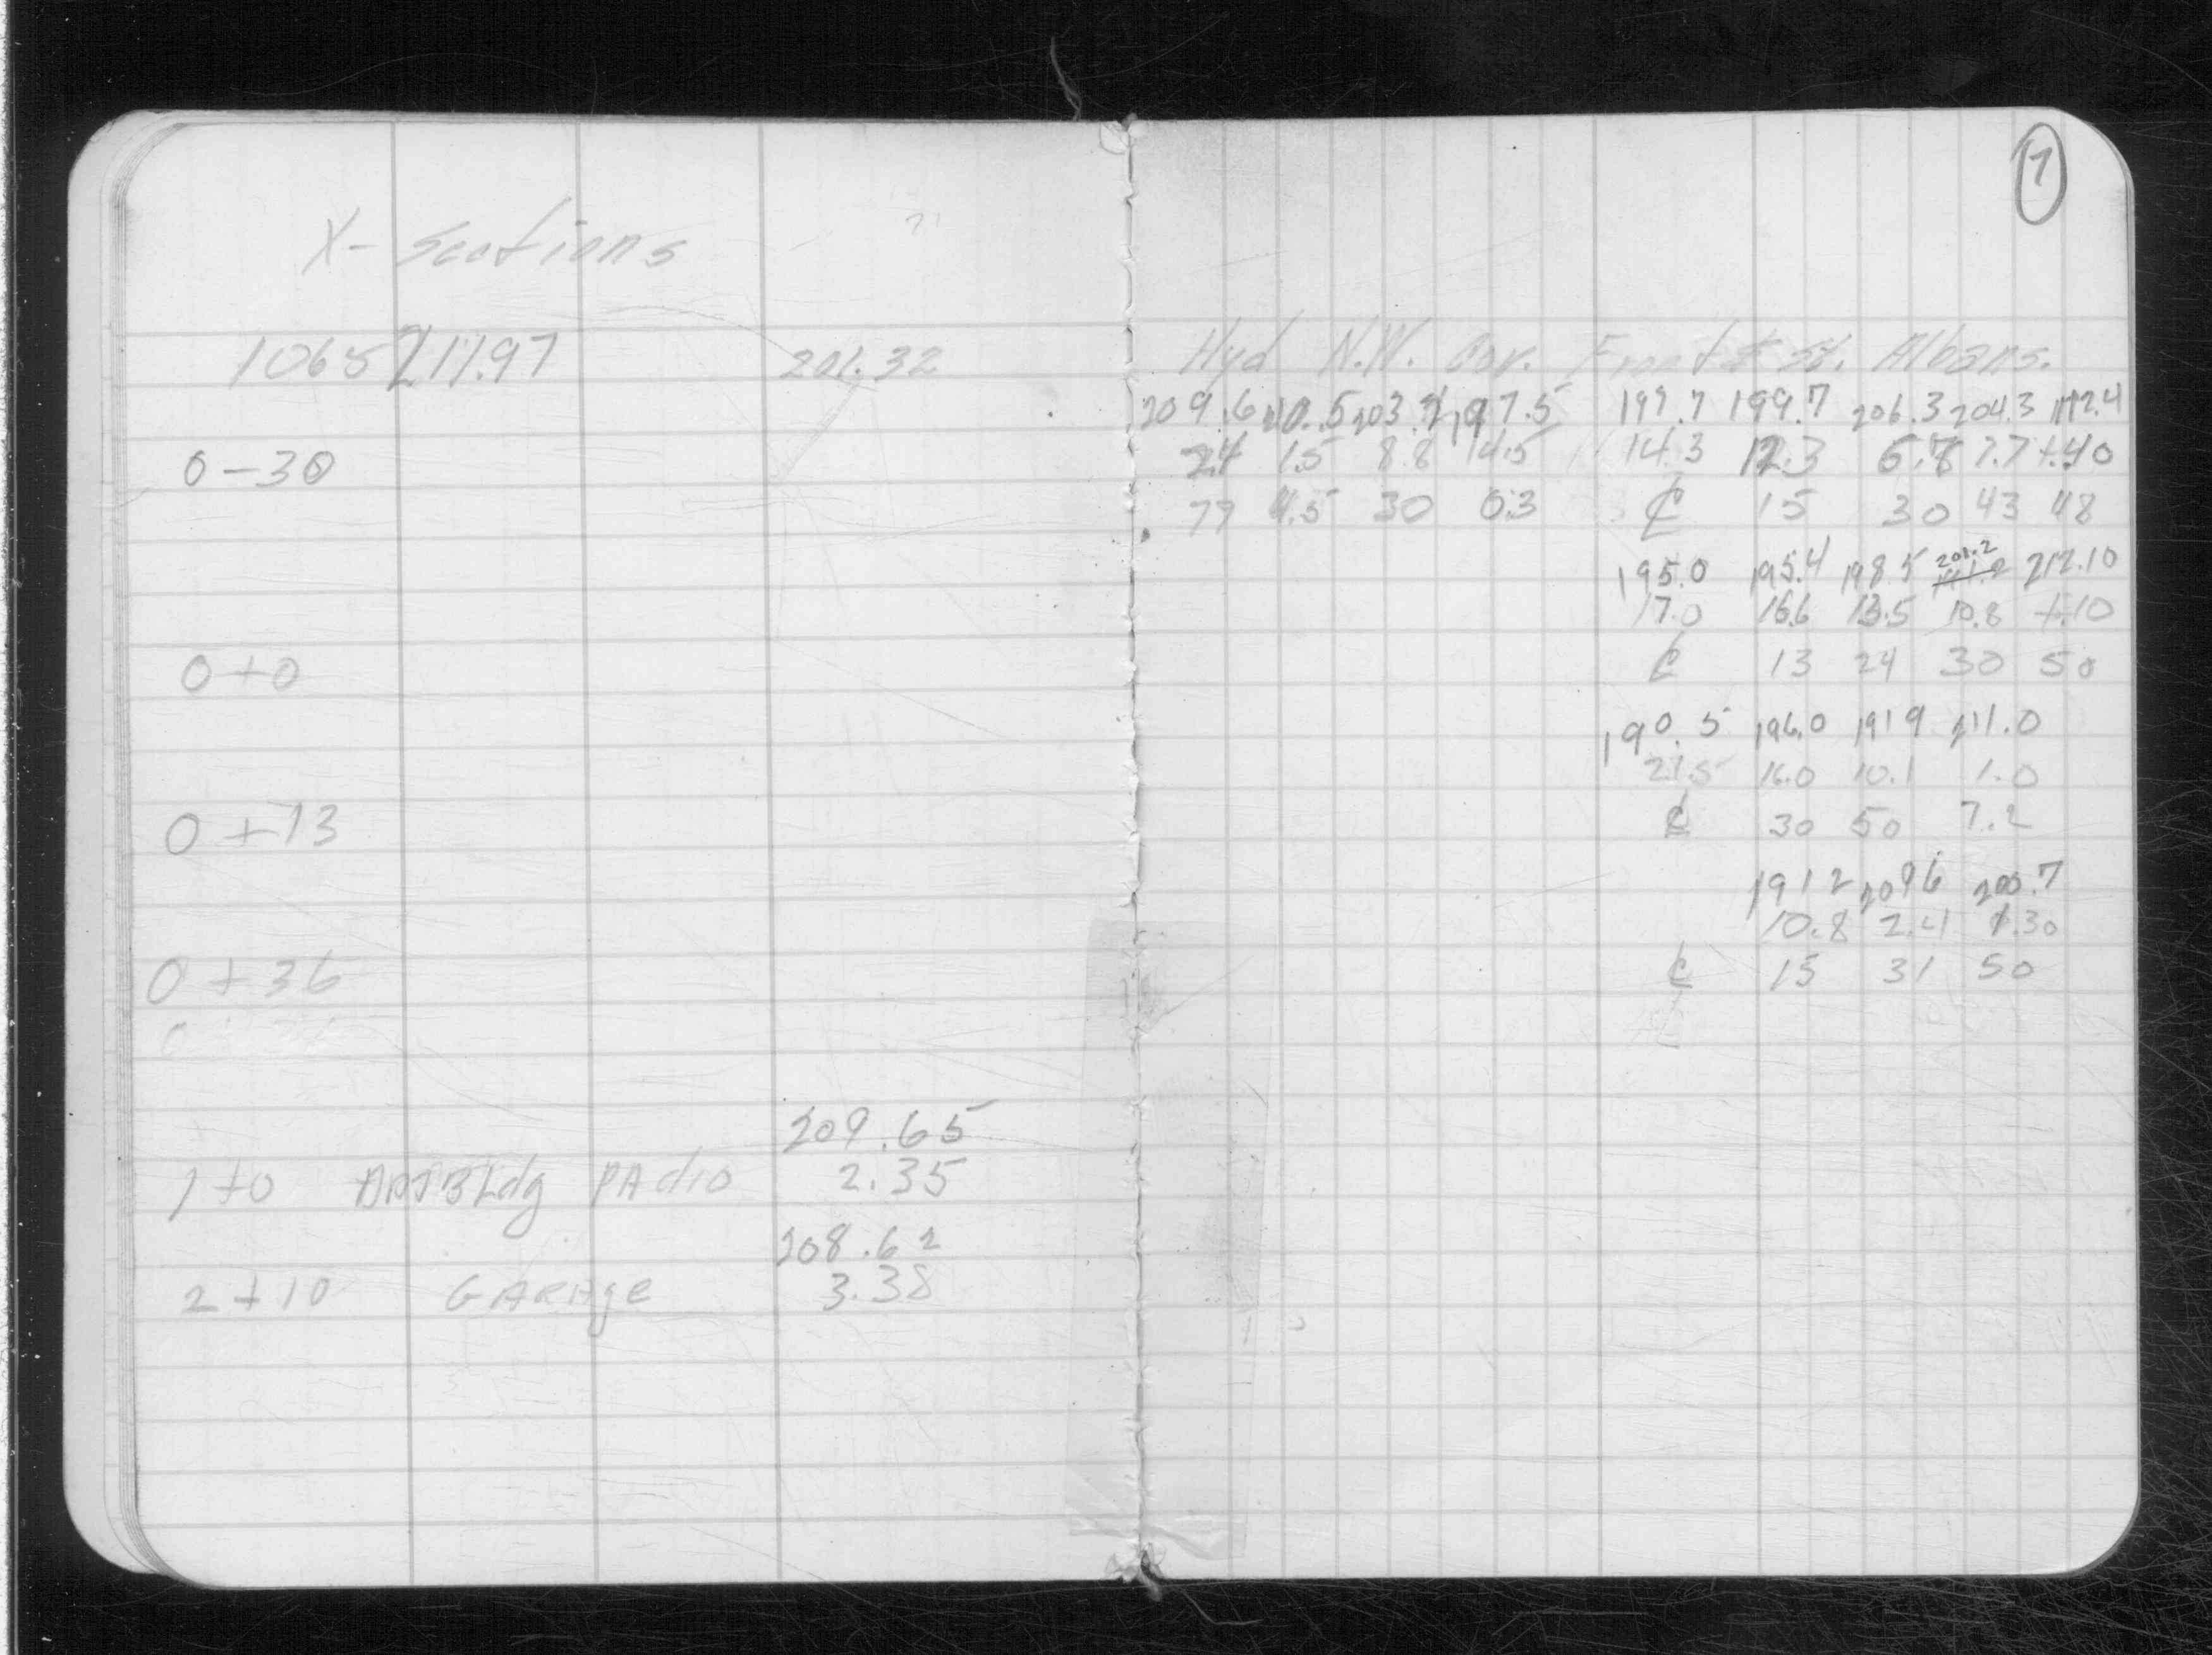 7
X- Sections
1065 211.97 201.32
Hyd N.W. Cor. Front & St. Albans.
209.6 210.5 203.2 197.5 197.7 199.7 206.3 204.3 212.4
0-30 2.4 1.5 8.8 14.5 14.3 12.3 5.7 7.7 +.40
79 4.5 30 03 ℄ 15 30 43 48
195.0 195.4 198.5 201.2 212.10
17.0 16.6 13.5 10.8 +.10
0+0 ℄ 13 24 30 50
190.5 196.0 191 9 211.0
21.5 16.0 10.1 1.0
0+13 ℄ 30 50 7.2
191 2 209 6 200.7
10.8 2.4 1.30
0+36 ℄ 15 31 50
209.65
1+0 Bldg PAdio 2.35
208.62
2+10 GARAge 3.38